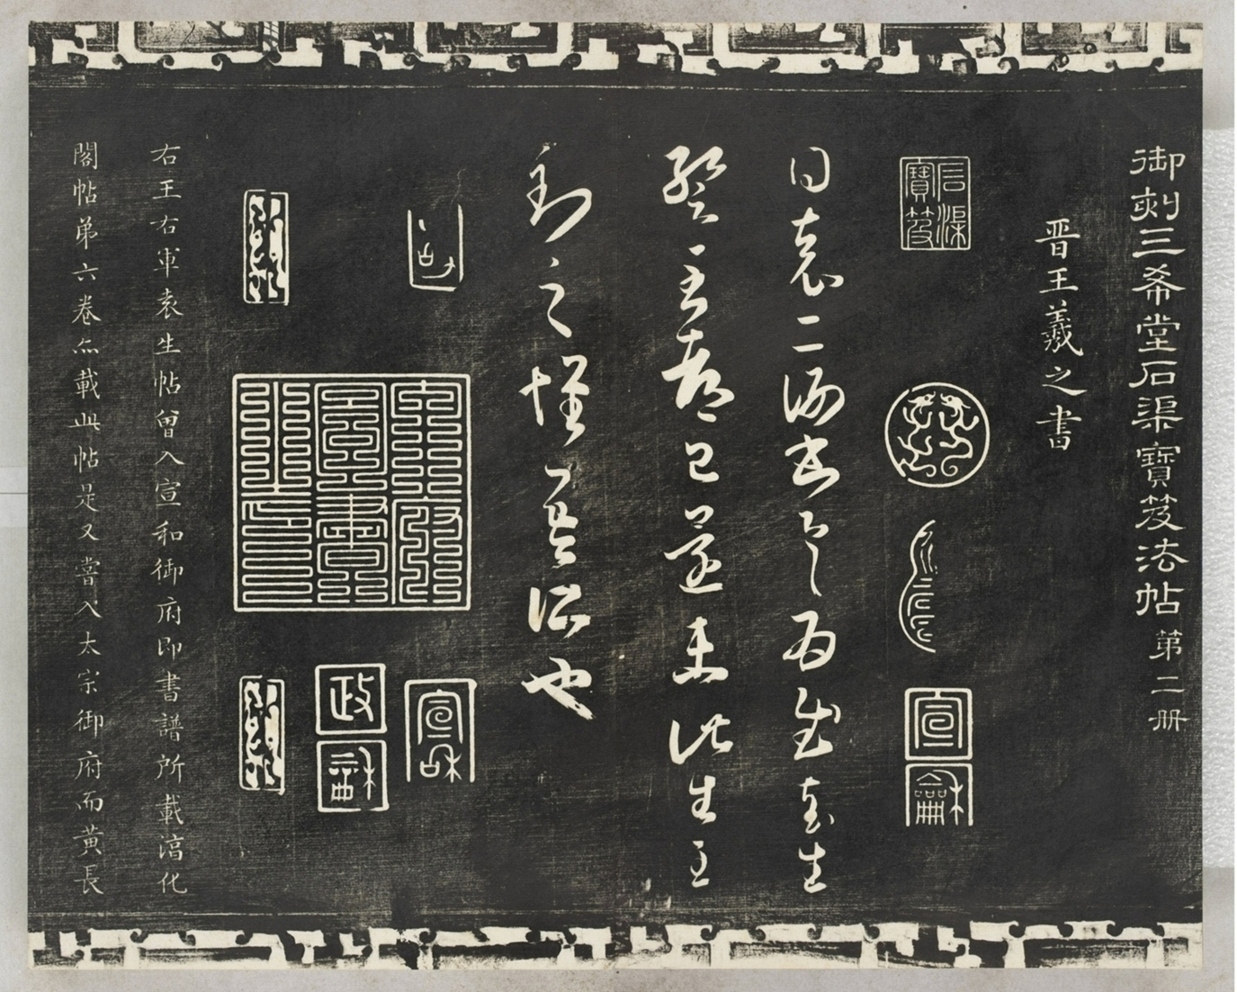 御刻三希堂石渠寶笈法帖第二册
晋王羲之書
石渠寶笈
宣龢
袁二謝書具為慰袁生
暫至都已還未此生至
到之懷吾所也
宣和
政龢
右王右軍袁生帖曾入宣和御府即書譜所載淳化
閣帖弟六卷亦載此帖是又嘗入太宗御府而黃長